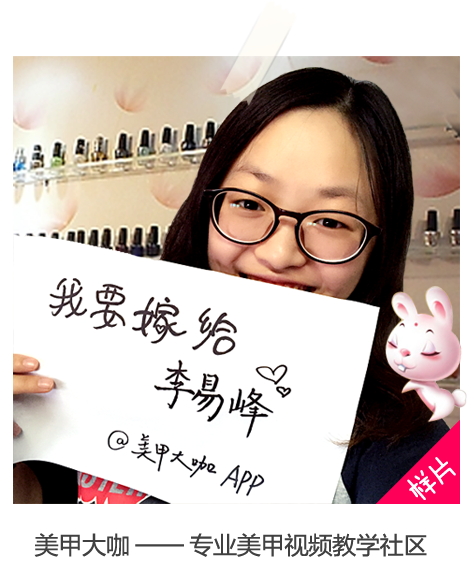 我要嫁给
李易峰
@美甲大咖 APP
样片
美甲大咖 —— 专业美甲视频教学社区